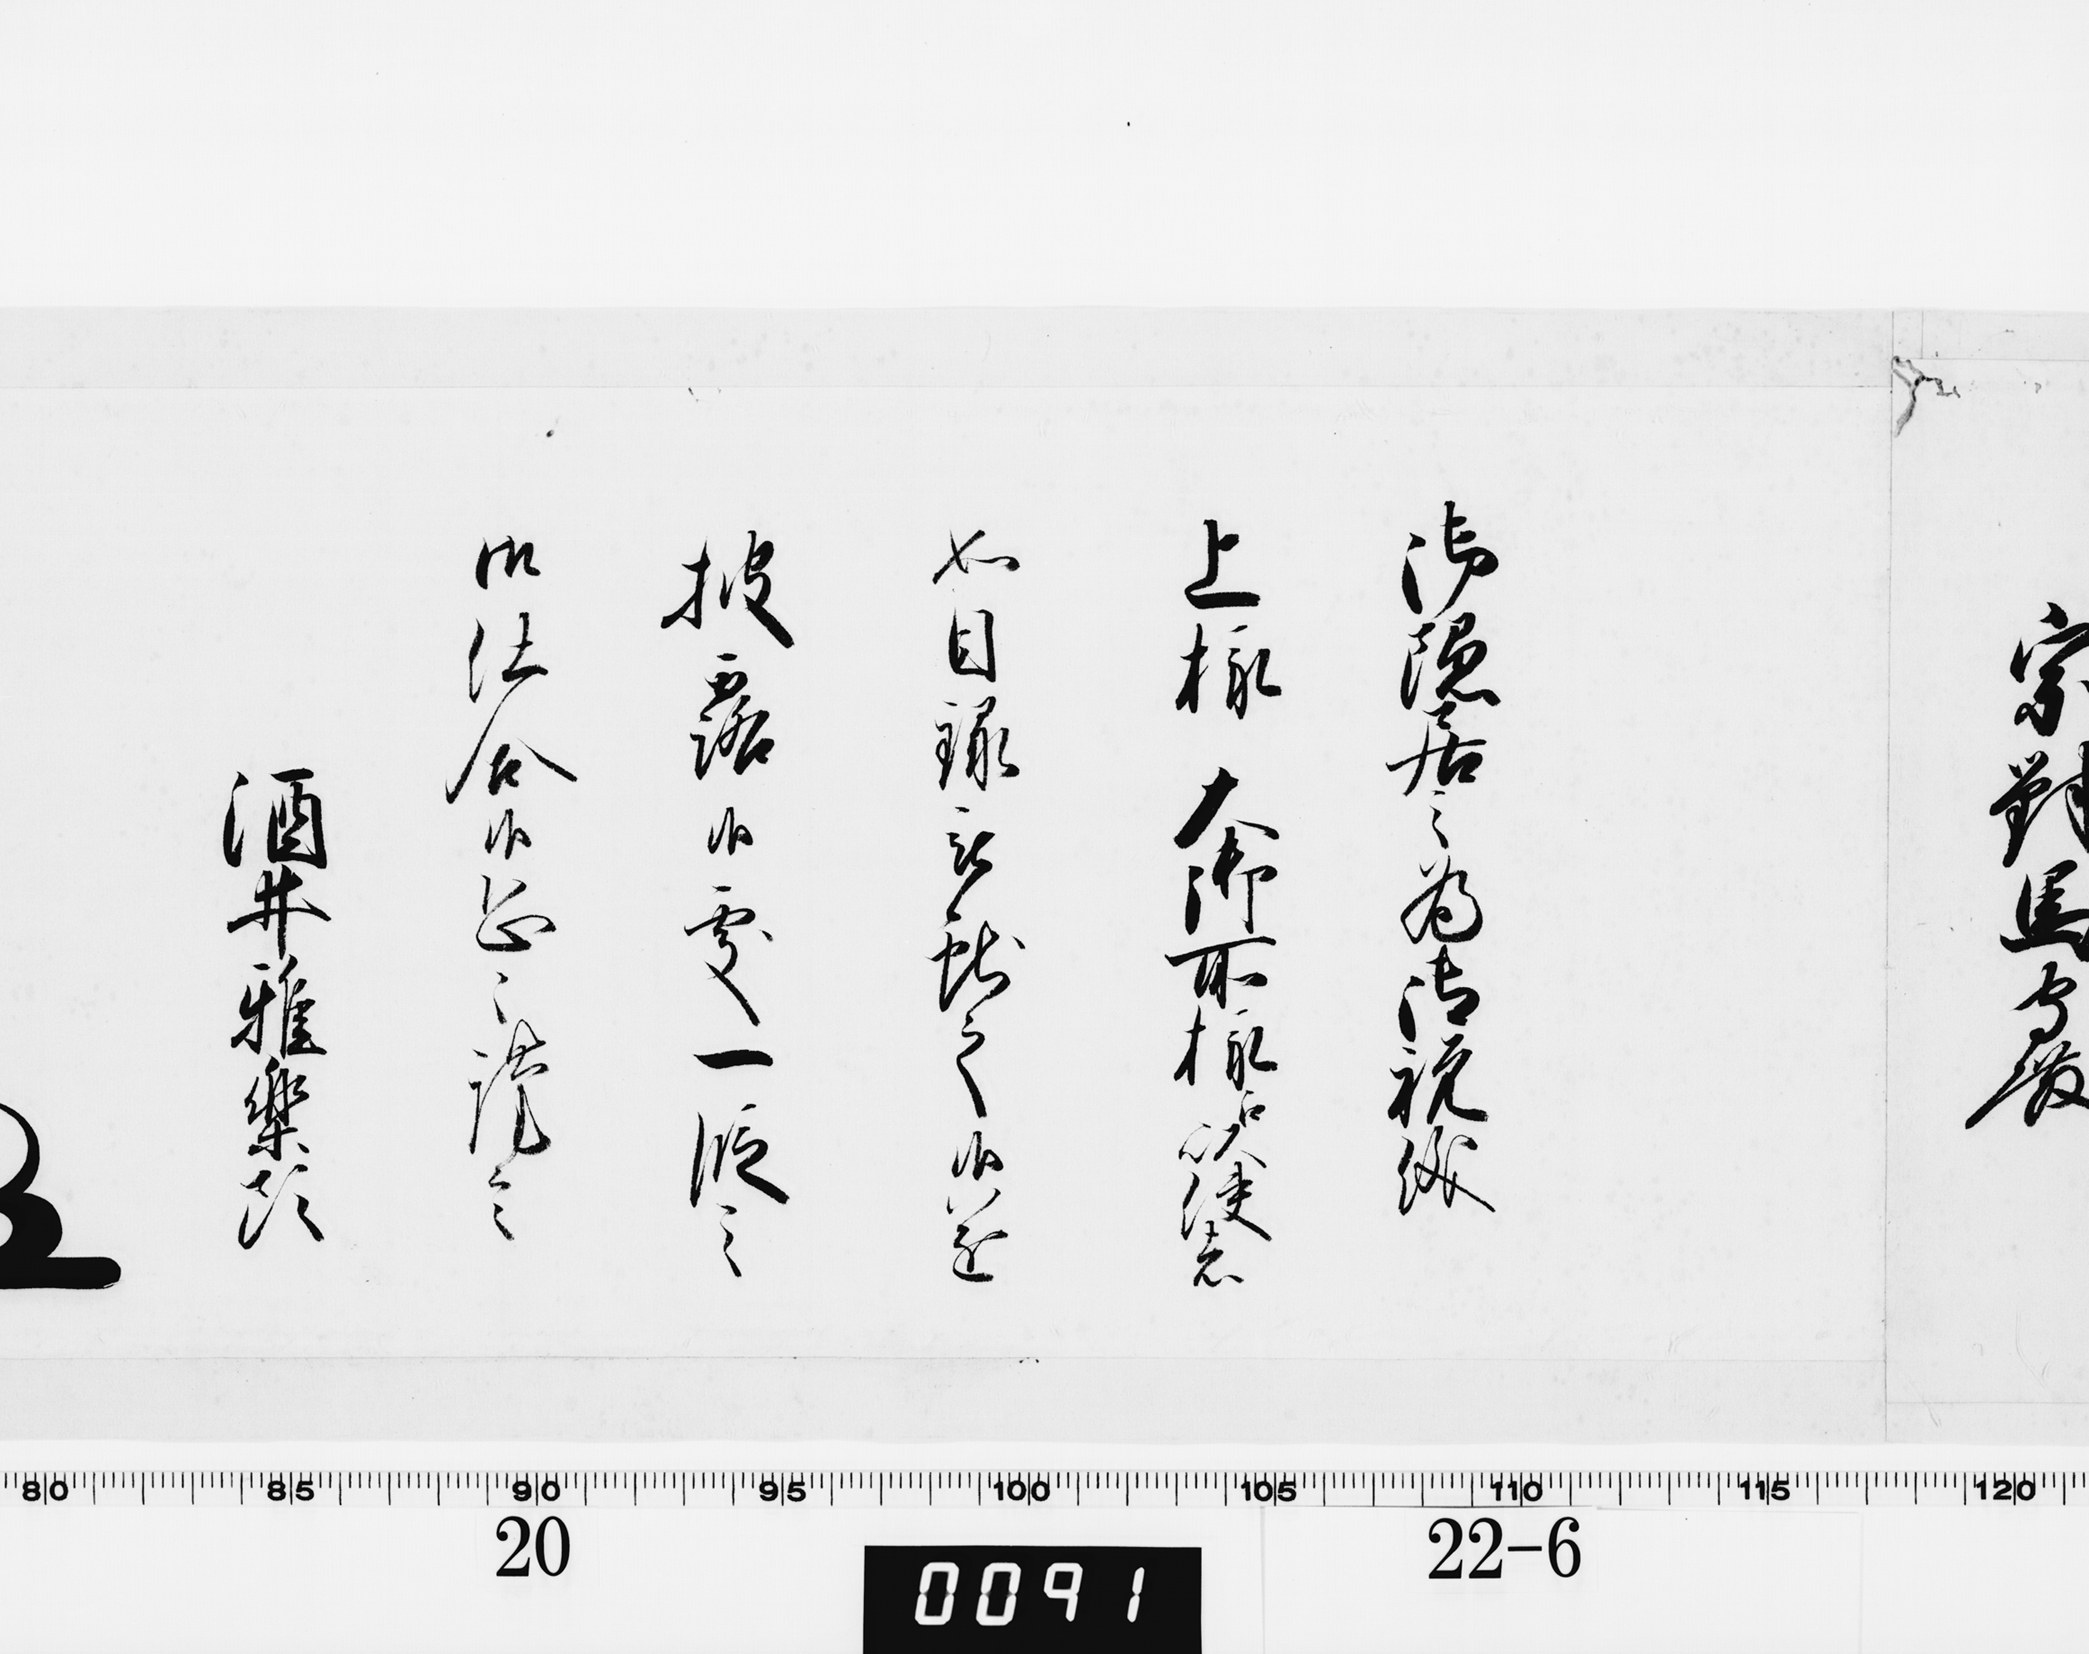 宗對馬守殿
御隠居之為御祝儀
上様 大御所様江以使者
如目録被献之候遂
披露候處一段之
御仕合候恐々謹言
酒井雅樂頭
80 85 90 95 100 105 110 115 120
20 22-6
0091